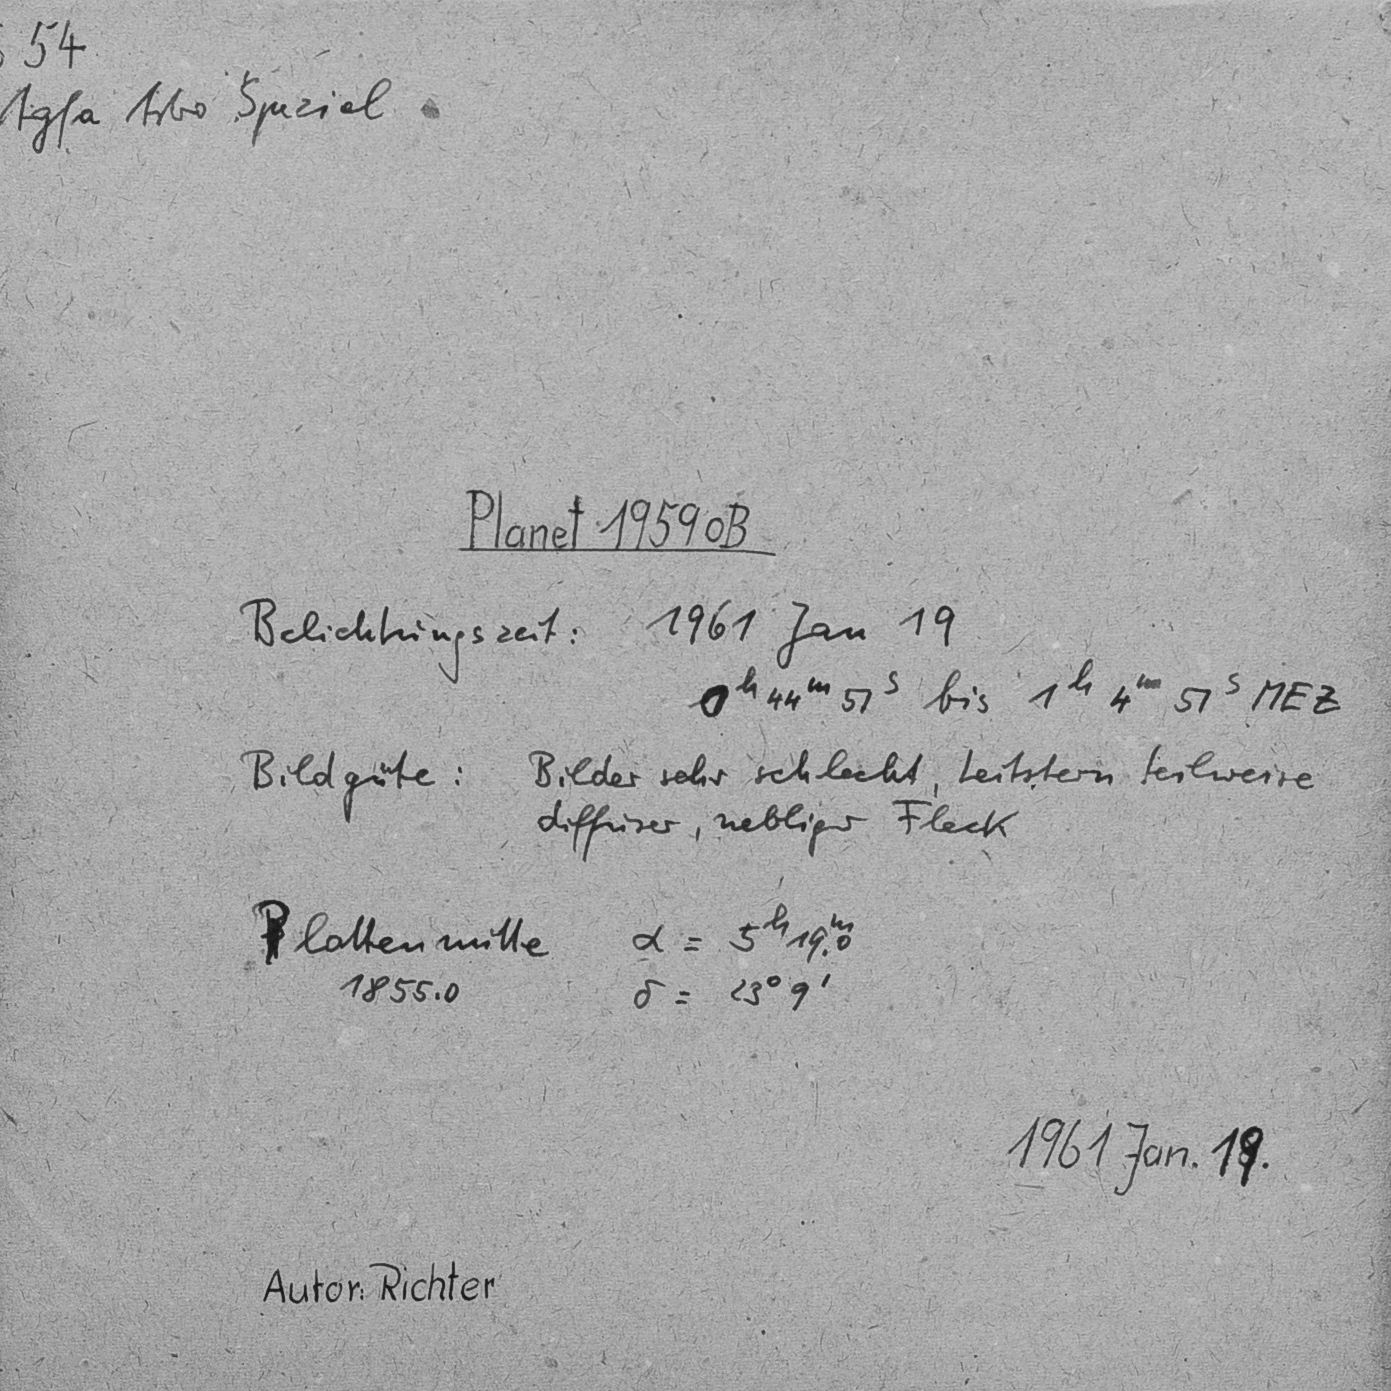 54
Agfa Astro Spezial
Planet 1959 OB
Belichtungszeit: 1961 Jan 19
0h 44m 51s bis 1h 4m 51s MEZ
Bildgüte: Bilder sehr schlecht, Leitstern teilweise
diffuser, nebliger Fleck
Plattenmitte α = 5h 19m.0
1855.0 δ = 23° 9'
1961 Jan. 19.
Autor: Richter